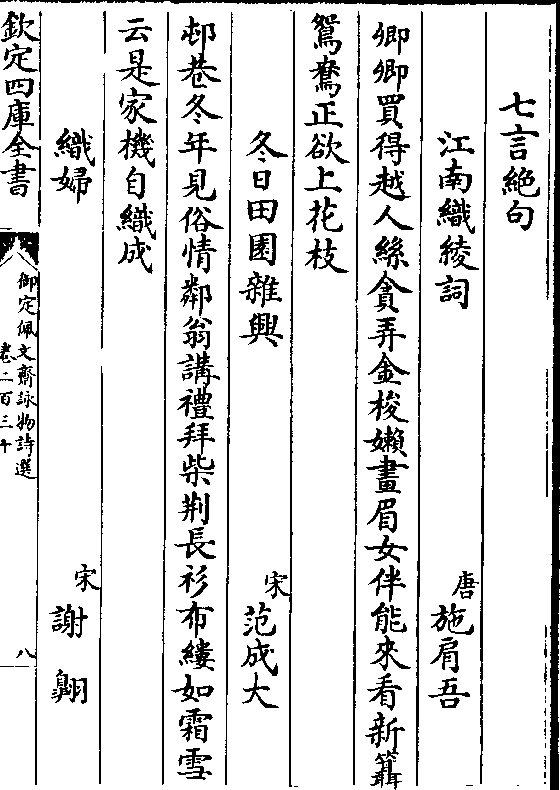 七言絶句
江南織綾詞　唐　施肩吾
卿卿買得越人絲貪弄金梭嬾畫眉女伴能來看新䉖
鴛鴦正欲上花枝
冬日田園雜興　宋　范成大
邨巷冬年見俗情鄰翁講禮拜柴荆長衫布縷如霜雪
云是家機自織成
織婦　宋　謝翺
欽定四庫全書
御定佩文齋詠物詩選
卷二百三十
八